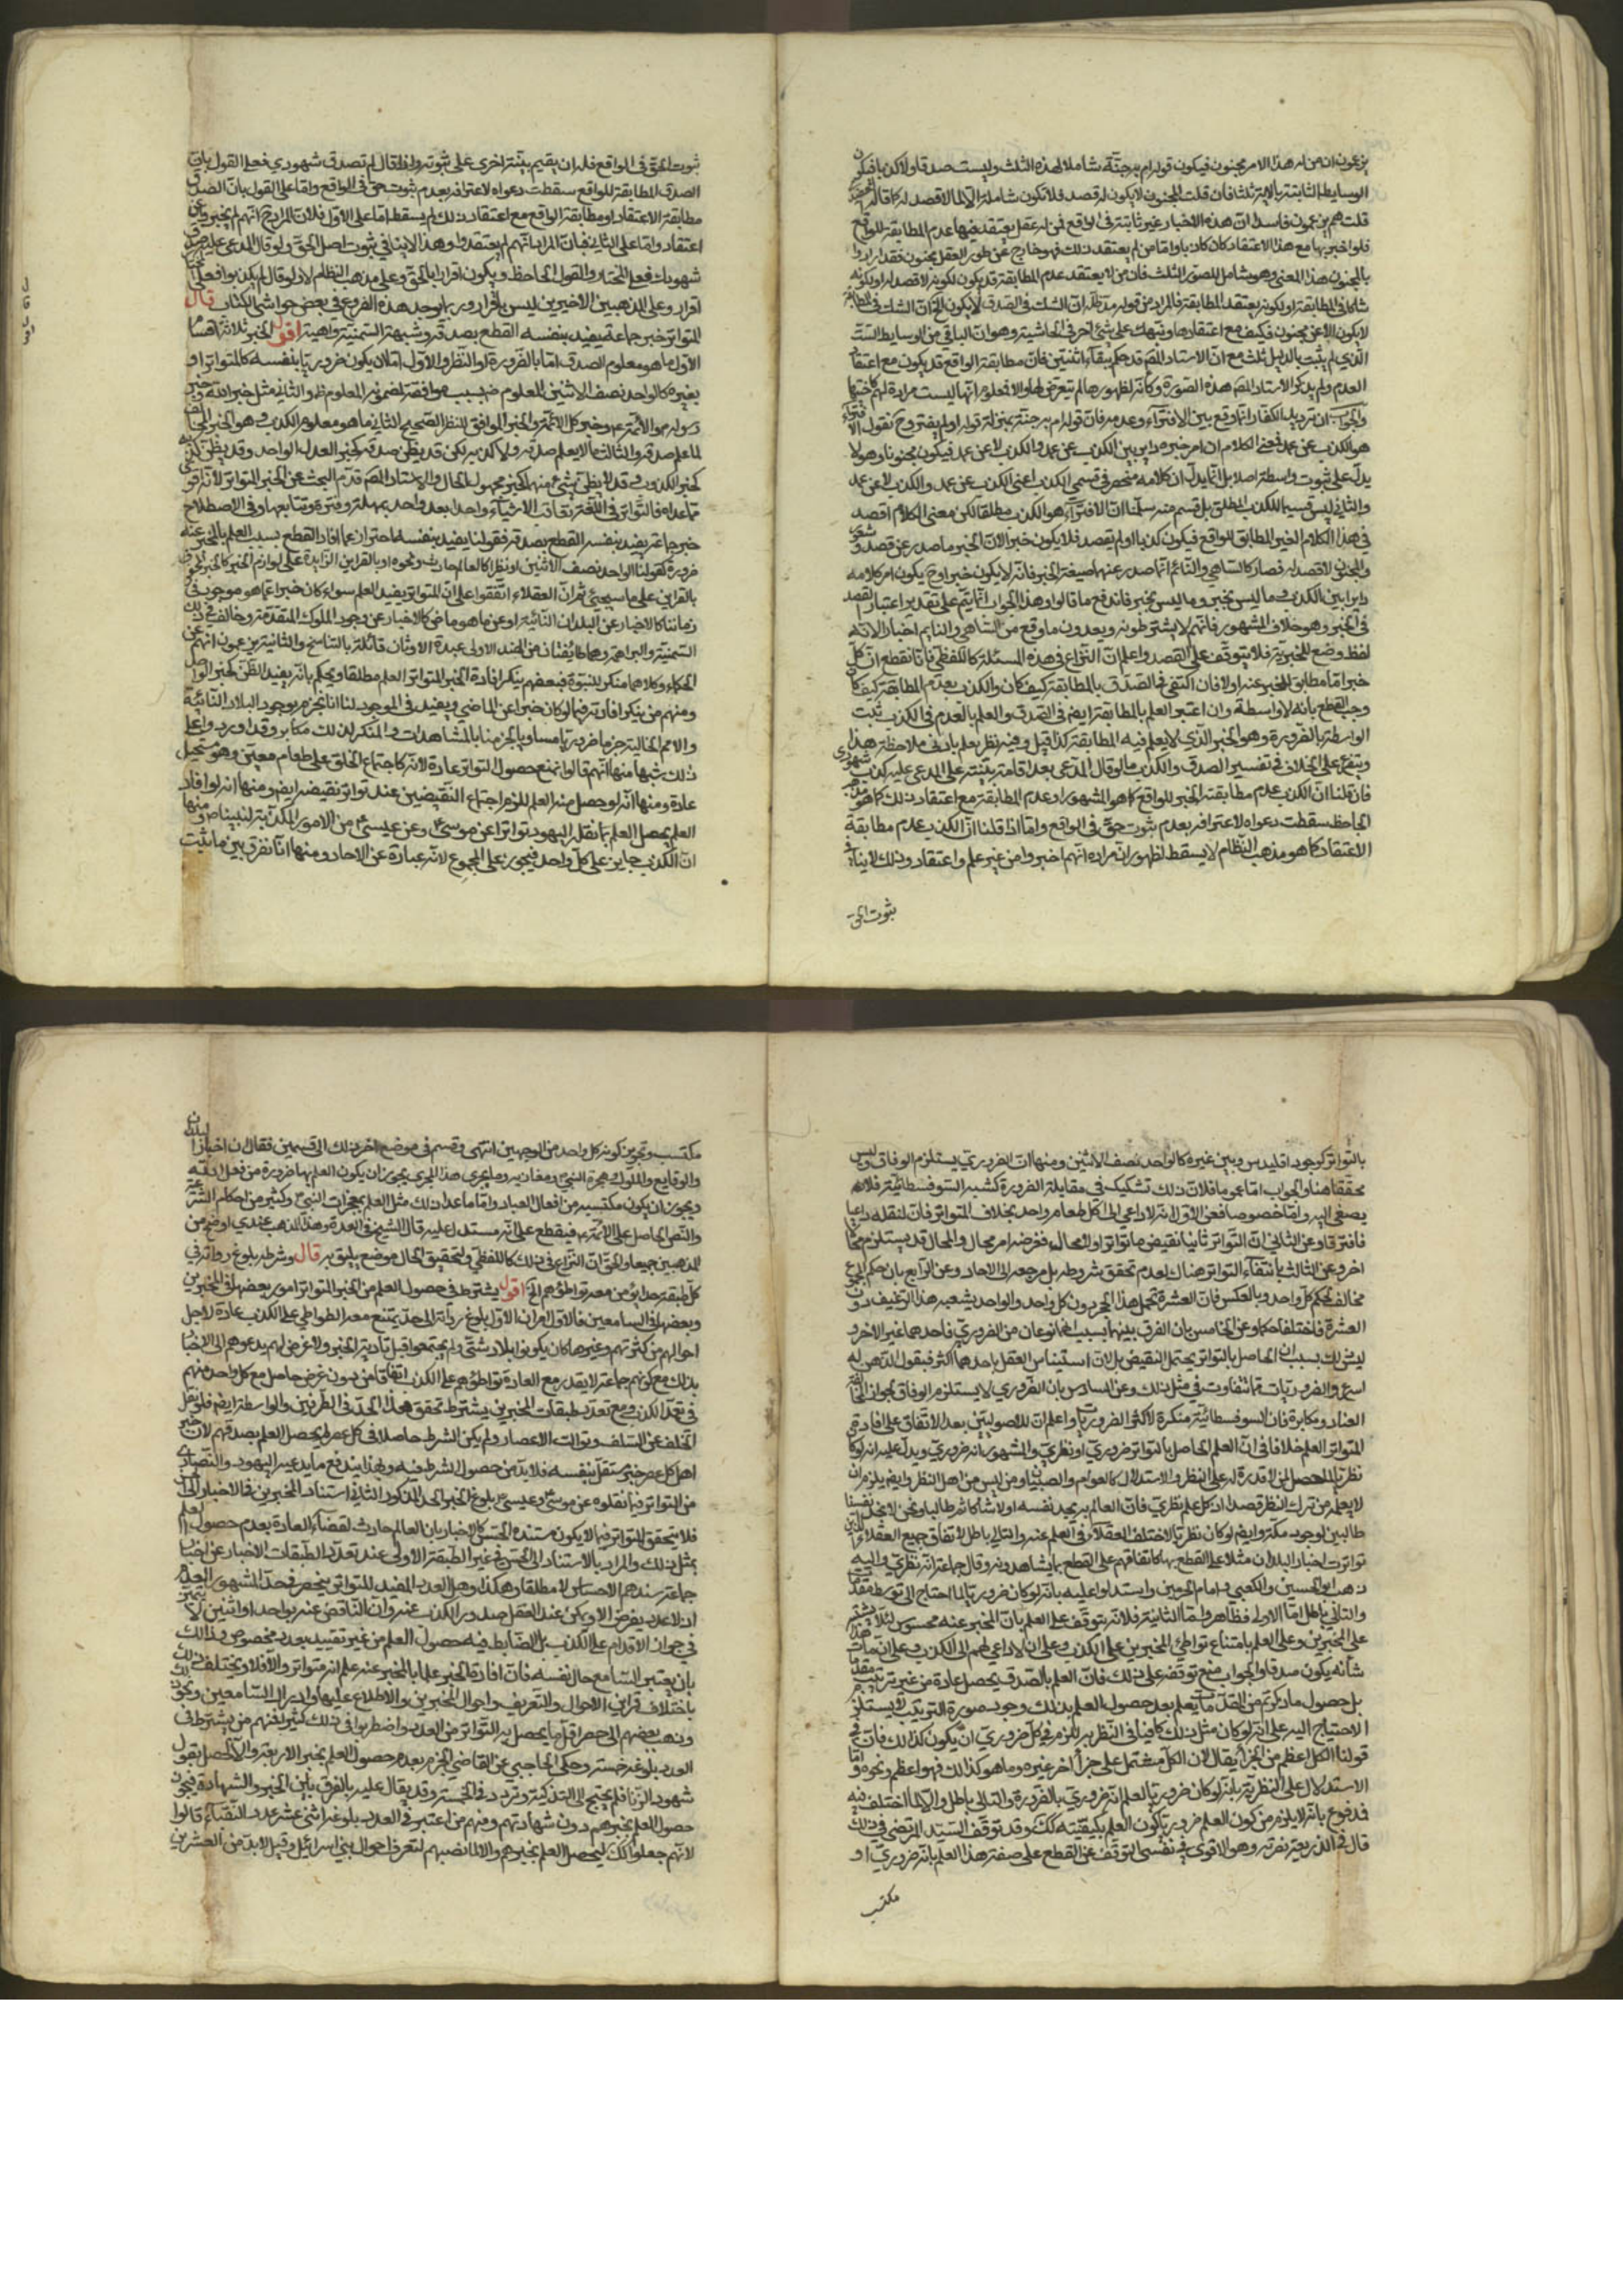 يزعمون ان من له هذا الامر مجنون فيكون قوله ام به جنة شاملا لهذه الثلث وليست صدقا ولا كذبا فيكون
الوسايط الثابتة بالاية ثلثا فان قلت المجنون لا يكون له قصد فلا تكون شاملة
قلت هم يزعمون فاسدا ان هذه الاخبار غير ثابتة في الواقع فمن له عقل يعتقد فيها عدم المطابقة للواقع
فلو اخبر بها مع هذا الاعتقاد كان كاذبا واما من لم يعتقد ذلك فهو خارج عن طور العقل مجنون فقد ارادوا
بالمجنون هذا المعنى وهو شامل للصور الثلث فان من لا يعتقد عدم المطابقة قد يكون لكونه لا قصد له او لكونه
شاكا في المطابقة او لكونه يعتقد المطابقة فالمراد من قوله ان الشك في الصدق لا يكون
لا يكون الا عن مجنون فكيف مع اعتقاده وننبهك على شيء اخر في الحاشية وهو ان الباقي من الوسايط الست
الذي لم يثبت بالدليل ثلث مع ان الاستاد المص قد حكم ببقاء اثنتين فان مطابقة الواقع قد يكون مع اعتقاد
العدم ولم يذكر الاستاد المص هذه الصورة وكأنه لظهورها لم يتعرض لها والا فمعلوم انها ليست مرادة لهم
والجواب ان ترديد الكفار انما وقع بين الافتراء وعدمه فان قوله ام به جنة بمنزلة قوله او لم يفتر وح نقول الافتراء
هو الكذب عن عمد فمعنى الكلام ان امر خبره داير بين الكذب عن عمد والكذب لا عن عمد فيكون مجنونا وهو لا
يدل على ثبوت واسطة اصلا بل انما يدل ان كلامه منحصر في قسمي الكذب اعنى الكذب عن عمد والكذب لا عن عمد
والثاني ليس قسيما للكذب المطلق بل قسم منه سلمنا ان الافتراء هو الكذب مطلقا لكن معنى الكلام اقصد
في هذا الكلام الغير المطابق للواقع فيكون كذبا او لم يقصد فلا يكون خبرا لان الخبر ما صدر عن قصد وشعور
والمجنون لا قصد له فصار كالساهي والنائم انما صدر عنها صيغة الخبر فانه لا يكون خبرا وح يكون امر كلامه
دايرا بين الكذب وما ليس بخبر وما ليس بخبر فاندفع ما قالوا وهذا الجواب انما يتم على تقدير اعتبار القصد
في الخبر وهو خلاف المشهور فانهم لا يشترطونه ويعدون ما وقع من الساهي والنايم اخبارا لانه
لفظ وضع للخبرية فلا يتوقف على القصد واعلم ان النزاع في هذه المسئلة كاللفظي فانا نقطع ان كل
خبر اما مطابق للمخبر عنه او لا فان اكتفى في الصدق بالمطابقة كيف كان والكذب بعدم المطابقة كيف كان
وجب القطع بانه لا واسطة وان اعتبر العلم بالمطابقة ايض في الصدق والعلم بالعدم في الكذب ثبت
الواسطة بالضرورة وهو الخبر الذي لا يعلم فيه المطابقة كذا قيل وفيه نظر يعلم بادنى ملاحظة هذا
ويتفرع على الخلاف في تفسير الصدق والكذب ما لو قال المدعي بعد اقامة بينته على المدعى عليه كذب شهودي
فان قلنا ان الكذب عدم مطابقة الخبر للواقع كما هو المشهور او عدم المطابقة مع اعتقاد ذلك كما هو مذهب
الجاحظ سقطت دعواه لاعترافه بعدم ثبوت حق في الواقع واما اذا قلنا ان الكذب عدم مطابقة
الاعتقاد كما هو مذهب النظام لا يسقط لظهور ان مراده انهم اخبروا من غير علم واعتقاد وذلك لا ينافي
ثبوت الحق
ثبوت الحق في الواقع فله ان يقيم بينة اخرى على ثبوته ولو قال لم تصدق شهودي فعلى القول بان
الصدق المطابقة للواقع سقطت دعواه لاعترافه بعدم ثبوت حق في الواقع واما على القول بان الصدق
مطابقة الاعتقاد او مطابقة الواقع مع اعتقاد ذلك لم يسقط اما على الاول فلان المراد ح انهم لم يخبروا عن
اعتقاد واما على الثاني فبان المراد انهم لم يعتقدوا وهذا لا ينافي ثبوت اصل الحق ولو قال المدعى عليه صدق
شهودك فعلى المختار والقول الجاحظ ويكون اقرارا بالحق وعلى مذهب النظام لا ولو قال لم يكذبوا فعلى
اقرار وعلى المذهبين الاخيرين ليس باقرار وربما يوجد هذه الفروع في بعض حواشي الكتاب قال
المتواتر خبر جماعة يفيد بنفسه القطع بصدقه وشبهة السمنية واهية اقول الخبر ثلاثة اقسام
الاول ما هو معلوم الصدق اما بالضرورة او النظر والاول اما ان يكون ضروريا بنفسه كالمتواتر او
بغيره كالواحد نصف الاثنين المعلوم ضرورة بسبب موافقته لمضمونه المعلوم والثاني مثل خبر الله وخبر
رسوله والائمة ع وخبر كل الائمة والخبر الموافق للنظر الصحيح الثاني ما هو معلوم الكذب وهو الخبر المخالف
لما علم صدقه والثالث ما لا يعلم صدقه ولا كذبه لكن قد يظن صدقه كخبر العدل الواحد وقد يظن كذبه
كخبر الكذوب وقد لا يظن شيء منهما كخبر مجهول الحال والاستاد المص قدم البحث عن الخبر المتواتر لانه اقوى
مما عداه فالتواتر في اللغة تعاقب الاشياء واحدا بعد واحد بمهلة وفترة وتتابعها وفي الاصطلاح
خبر جماعة يفيد بنفسه القطع بصدقه فقولنا يفيد بنفسه احتراز عما افاد القطع بسبب العلم بالمخبر عنه
ضرورة كقولنا الواحد نصف الاثنين او نظرا كالعالم حادث ونحوه او بالقراين الزايدة على لوازم الخبر
بالقراين على ما سيجيء ثم ان العقلاء اتفقوا على ان المتواتر يفيد العلم سواء كان خبرا عما هو موجود في
زماننا كالاخبار عن البلدان النائية او عن ما هو ماض كالاخبار عن وجود الملوك المتقدمة وخالف في ذلك
السمنية والبراهمة وهما طايفتان من الهند الاولى عبدة الاوثان قائلة بالتناسخ والثانية يزعمون انهم من
الحكماء وكلاهما منكر للنبوة فبعضهم ينكر افادة الخبر المتواتر العلم مطلقا ويحكم بانه يفيد الظن كخبر الواحد
ومنهم من ينكر افادته فيما لو كان خبرا عن الماضي ويفيد في الموجود لنا انا نجزم بوجود البلاد النائية
والامم الخالية جزما ضروريا مساويا لجزمنا بالمشاهدات فالمنكر لذلك مكابر وقد اوردوا على
ذلك شبها منها انهم قالوا نمنع حصول التواتر عادة لانه كاجتماع الخلق على طعام معين وهو مستحيل
عادة ومنها انه لو حصل منه العلم للزم اجتماع النقيضين عند تواتر نقيضه ايض ومنها انه لو افاد
العلم يحصل العلم بما نقله اليهود تواترا عن موسى ع وعن عيسى ع من الامور المكذبة لنبينا ص ومنها
ان الكذب جايز على كل واحد فيجوز على المجموع لانه عبارة عن الاحاد ومنها انا نفرق بين ما ثبت
بالتواتر كوجود اقليدس وبين غيره كالواحد نصف الاثنين ومنها ان الضروري يستلزم الوفاق وليس
محققا هنا والجواب اما عموما فلان ذلك تشكيك في مقابلة الضرورة كشبه السوفسطائية فلا
يصغى اليه واما خصوصا فعن الاول انه لا داعي الى اكل طعام واحد بخلاف المتواتر فان لنقله داعيا
فافترقا وعن الثاني ان التواتر ثانيا نقيض ما تواتر اولا محال فغرضه امر محال والمحال قد يستلزم محالا
اخر وعن الثالث بانتفاء التواتر هناك لعدم تحقق شروطه بل مرجعه الى الاحاد وعن الرابع بان حكم الجميع
مخالف لحكم كل واحد وبالعكس فان العشرة تحمل هذا الحجر دون كل واحد والواحد يشبعه هذا الرغيف دون
العشرة فاختلفا حكما وعن الخامس بان الفرق بينهما بسبب انهما نوعان من الضروري فاحدهما غير الاخر و
ليس ذلك بسبب ان الحاصل بالتواتر يحتمل النقيض بل لان استيناس العقل باحدهما اكثر فيقول الذهن له
اسرع والضروريات مما تتفاوت في مثل ذلك وعن السادس بان الضروري لا يستلزم الوفاق لجواز
العناد ومكابرة فان السوفسطائية منكرة لاكثر الضروريات واعلم ان للاصوليين بعد الاتفاق على افادة
المتواتر العلم خلافا في ان العلم الحاصل بالتواتر ضروري او نظري والمشهور انه ضروري ويدل عليه انه لو كان
نظريا لما حصل لمن لا قدرة له على النظر والاستدلال كالعوام والصبيان ومن ليس من اهل النظر وايض يلزم ان
لا يعلمه من ترك النظر قصدا اذ كل علم نظري فان العالم به يجد نفسه اولا شاكا ثم طالبا ونحن لا نجد نفسنا
طالبين لوجود مكة وايض لو كان نظريا لاختلف العقلاء في العلم عنه والتالي باطل لاتفاق جميع العقلاء الذين
تواترت اخبار البلدان مثلا على القطع بها كاتفاقهم على القطع بما يشاهدونه وقال جماعة انه نظري واليه
ذهب ابو الحسين والكعبي وامام الحرمين واستدلوا عليه بانه لو كان ضروريا لما احتاج الى توسط مقدمتين
والتالي باطل اما الاول فظاهر واما الثانية فلانه يتوقف على العلم بان المخبر عنه محسوس لئلا يشتبه
على المخبرين وعلى العلم بامتناع تواطئ المخبرين على الكذب وعلى ان لا داعي لهم الى الكذب وعلى ان ما هذا
شأنه يكون صدقا والجواب منع توقفه على ذلك فان العلم بالصدق يحصل عادة من غير ترتيب مقدمات
بل حصول ما ذكرتم من المقدمات يعلم بعد حصول العلم بذلك ووجود صورة التركيب لا يستلزم
الاحتياج اليه على انه لو كان مثل ذلك كافيا في النظرية للزم في كل ضروري ان يكون كذلك فان في
قولنا الكل اعظم من الجزء يقال لان الكل مشتمل على جزء اخر غيره وما هو كذلك فهو اعظم ونحوه واما
الاستدلال على النظرية بانه لو كان ضروريا لعلم انه ضروري بالضرورة والتالي باطل والا لما اختلف فيه
فمدفوع بانه لا يلزم من كون العلم ضروريا كون العلم بكيفيته كك وقد توقف السيد المرتضى في ذلك
قال في الذريعة نصرته وهو الاقوى في نفسي التوقف عن القطع على صفة هذا العلم بانه ضروري او
مكتسب
مكتسب وتجويز كونه كل واحد من الوجهين انتهى وقسم في موضع اخر ذلك الى قسمين فقال ان اخبار البلدان
والوقايع والملوك وهجرة النبي ومغازيه وما يجري هذا المجرى يجوز ان يكون العلم بها ضرورة من فعل الله
ويجوز ان يكون مكتسبة من افعال العباد واما ما عدا ذلك مثل العلم بمعجزات النبي وكثير من احكام الشريعة
والنص الحاصل على الائمة ع فيقطع على انه مستدل عليه قال الشيخ في العدة وهذا المذهب عندي اوضح من
المذهبين جميعا والحق ان النزاع في ذلك كاللفظي ولتحقيق الحال موضع يليق به قال وشرطه بلوغ رواته في
كل طبقة حدا يؤمن معه تواطؤهم الخ اقول يشترط في حصول العلم من الخبر المتواتر امور بعضها في المخبرين
وبعضها في السامعين فالاول امران الاول بلوغ رواته الى حد يمتنع معه التواطي على الكذب عادة لاجل
احوالهم من كثرتهم وغيرها كان يكونوا ببلاد شتى ولم يجتمعوا قبل تأدية الخبر ولا غرض لهم يدعوهم الى الاخبار
بذلك مع كونهم جماعة لا يقدر مع العادة تواطؤهم على الكذب اتفاقا من دون غرض حاصل مع كل واحد منهم
في تعمد الكذب ومع تعدد طبقات المخبرين يشترط تحقق هذا الحد في الطرفين والواسطة ايض فلو نقل
الخلف عن السلف وتوالت الاعصار ولم يكن الشرط حاصلا في كل عصر لم يحصل العلم بصدقهم لان خبر
اهل كل عصر خبر مستقل بنفسه فلا بد من حصول الشرط فيه وبهذا يندفع ما يدعيه اليهود والنصارى
من التواتر فيما نقلوه عن موسى ع وعيسى ع بلوغ الخبر الحد المذكور الثاني استناد المخبرين في الاخبار الى الحس
فلا يتحقق التواتر فيما لا يكون مستنده الحس كالاخبار بان العالم حادث لقضاء العادة بعدم حصول العلم
بمثل ذلك والمراد بالاستناد الى الحس في غير الطبقة الاولى عند تعدد الطبقات الاخبار عن اخبار
جماعة سندهم الاحساس لا مطلقا وهكذا وهل العدد المفيد للمتواتر ينحصر في حد المشهور العدم
اذ لا عدد يفرض الا ويمكن عند العقل صدور الكذب عنه وان الناقص عنه بواحد او اثنين لا يتميز
في جواز الاقدام على الكذب بل الضابط فيه حصول العلم من غير تقييد بعدد مخصوص وذلك
بان يعتبر السامع حال نفسه فان افاده الخبر علما بالمخبر عنه علم انه متواتر والا فلا ويختلف ذلك
باختلاف قراين الاحوال والتعريف واحوال المخبرين والاطلاع عليها وادراك السامعين ونحو ذلك
وذهب بعضهم الى حصر اقل ما يحصل به التواتر من العدد واضطربوا في ذلك كثيرا فمنهم من يشترط في
العدد بلوغه خمسة وحكى الحاجبي عن القاضي الجزم بعدم حصول العلم بخبر الاربعة والا لحصل بقول
شهود الزنا فلم يحتج الى التزكية وتردد في الخمسة وقد يقال عليه بالفرق بين الخبر والشهادة فيجوز
حصول العلم بخبرهم دون شهادتهم ومنهم من اعتبر في العدد بلوغه اثنى عشر عدد النقباء قالوا
لانهم جعلوا كك ليحصل العلم بخبرهم والا لما نصبهم لتعرف احوال بني اسرائيل وقيل لا بد من العشرين